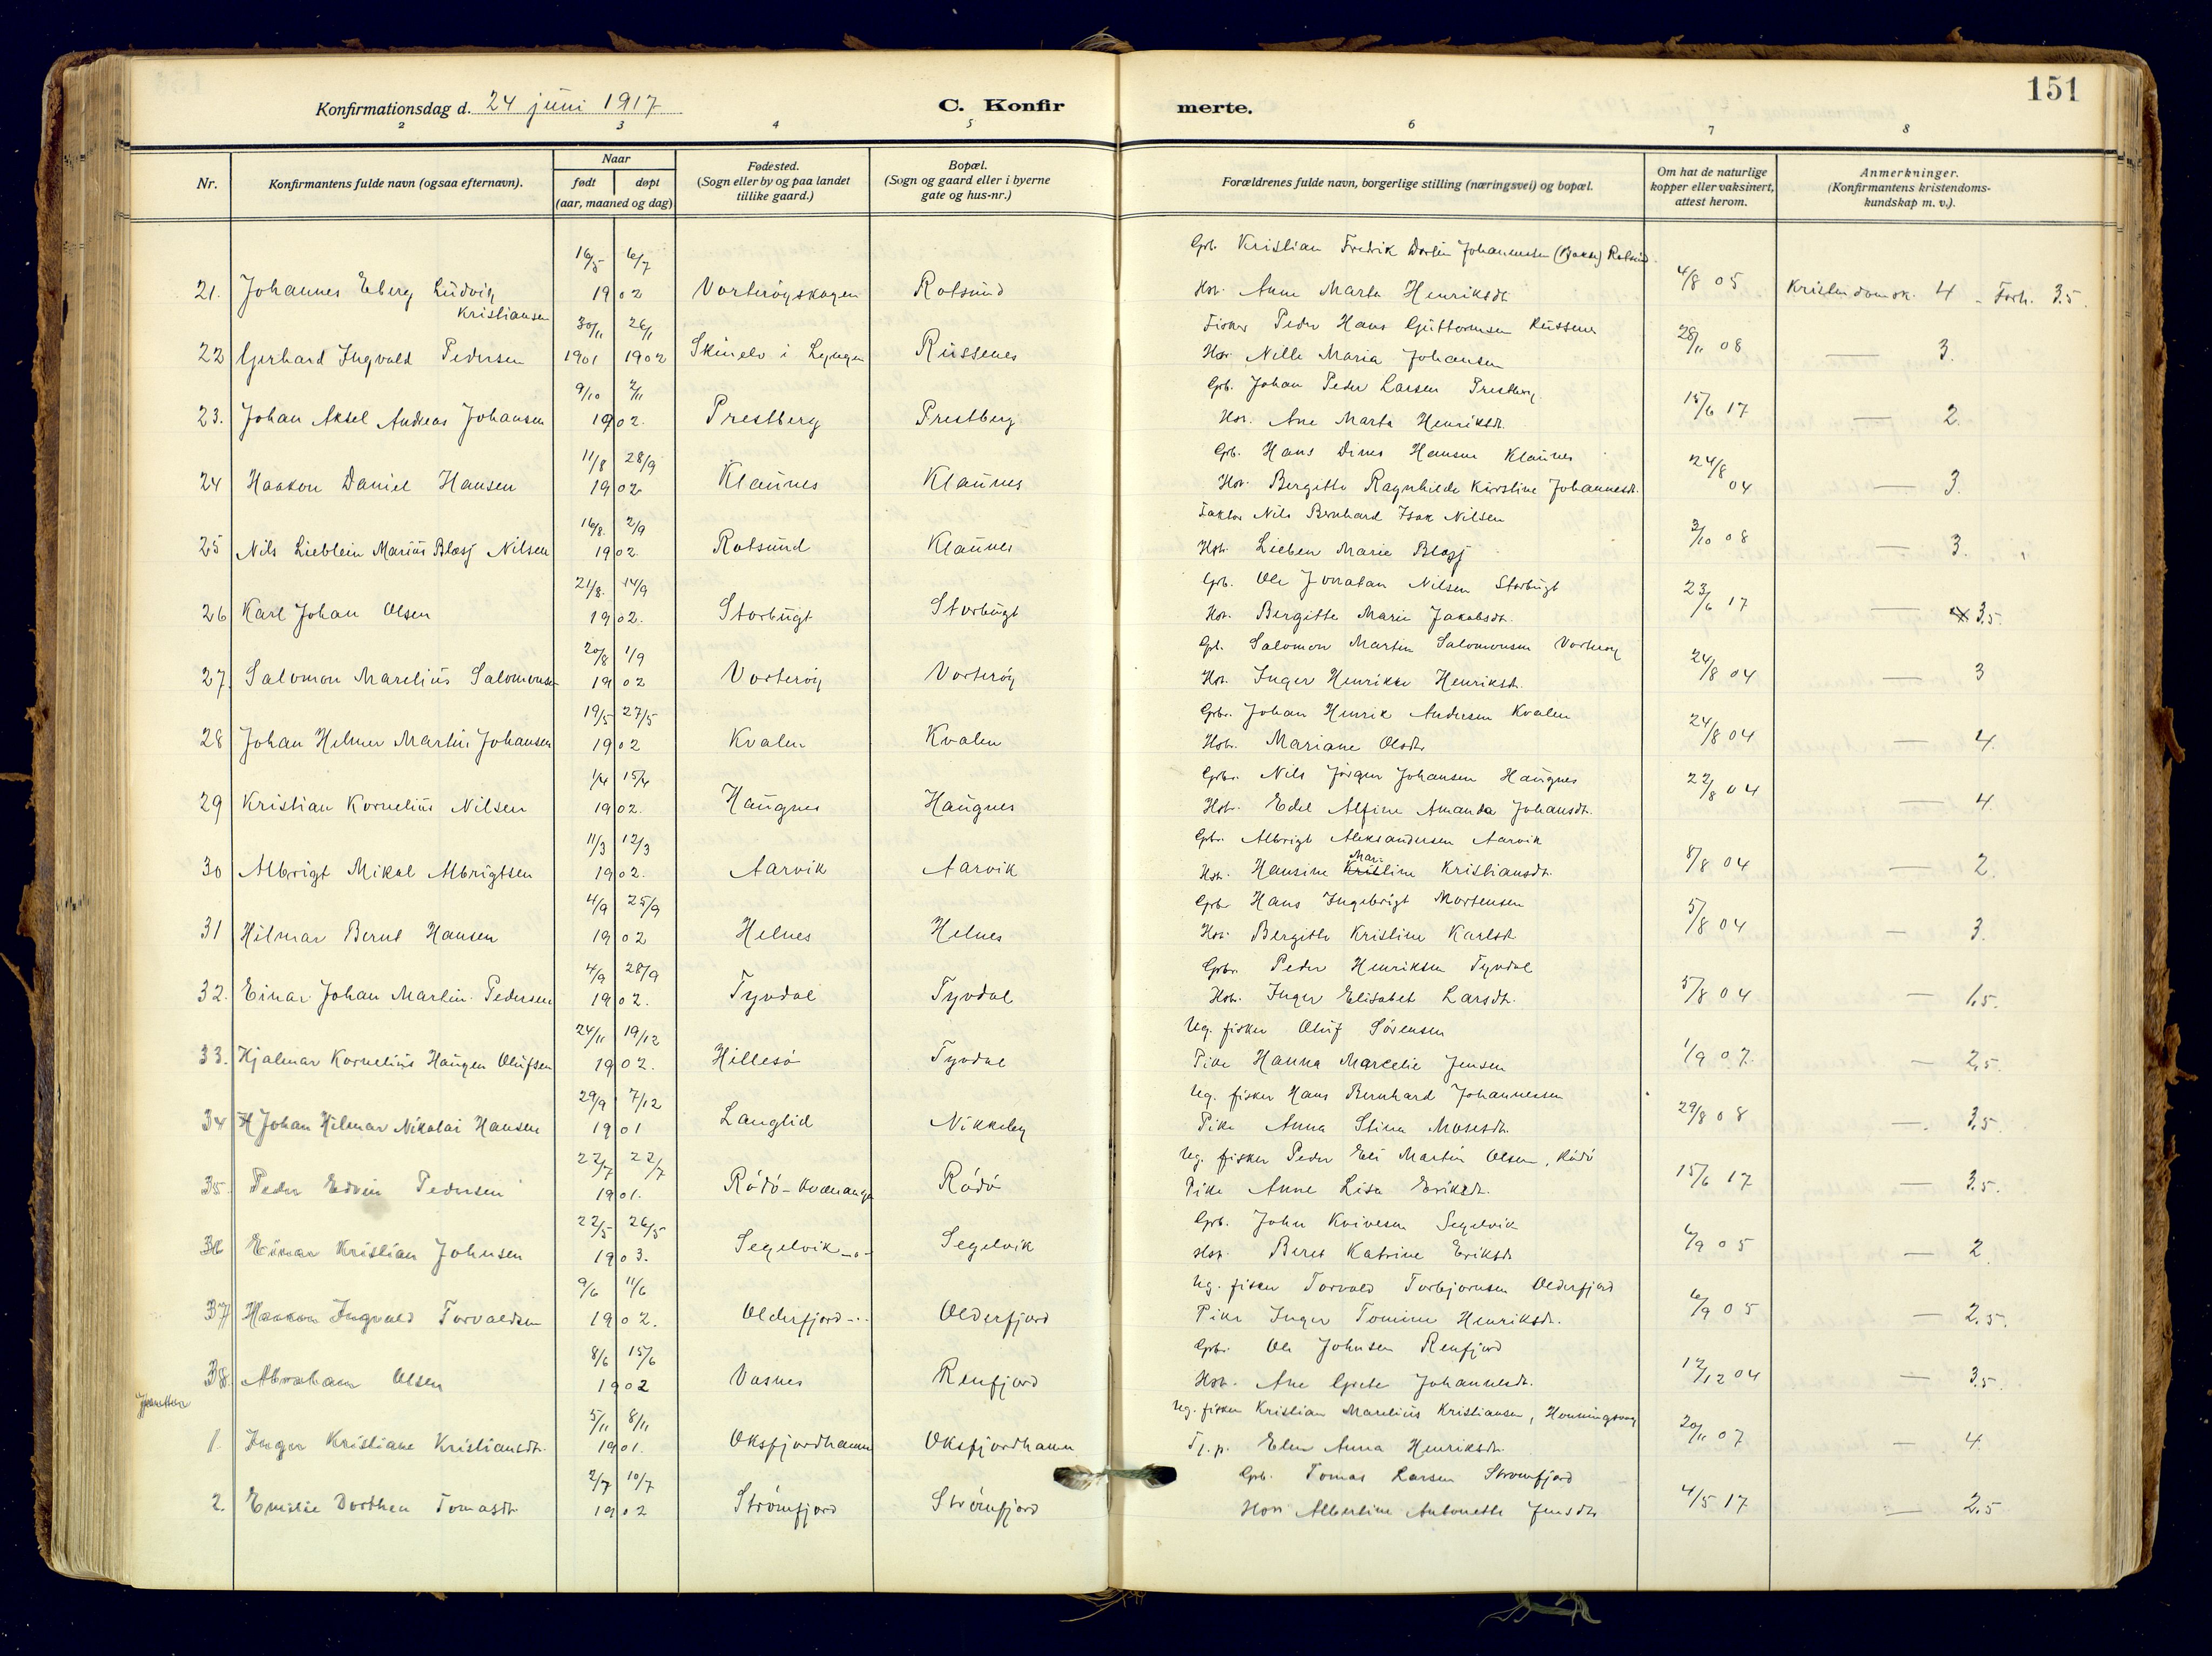 151
Konfirmationsdag d. 24 juni 1917
C. Konfir merte.
2 3 4 5 6 7 8
Nr.
Konfirmantens fulde navn (ogsaa efternavn).
Naar
født døpt
(aar, maaned og dag)
Fødested.
(Sogn eller by og paa landet
tillike gaard.)
Bopæl.
(Sogn og gaard eller i byerne
gate og hus-nr.)
Forældrenes fulde navn, borgerlige stilling (næringsvei) og bopæl.
Om hat de naturlige
kopper eller vaksinert,
attest herom.
Anmerkninger.
(Konfirmantens kristendoms-
kundskap m. v.).
16/5 6/7 Grb. Kristian Fredrik Johannessen Rotsund
21. Johannes Eberg Ludvig 1902 Vorterøyskagen Rotsund Hstr. Anne Marta Henriksdtr. 4/8 05 Kristendomsk. 4 - Forh. 3.5.
Kristiansen
30/11 26/11 Fisker Peder Hans Guttormsen Russenes
22 Gerhard Ingvald Pedersen 1901 1902 Skinelv i Lyngen Russenes Hstr. Nella Maria Johansen 28/11 08 — 3.
9/10 2/11 Grb. Johan Peder Larsen Prestberg.
23. Johan Aksel Andreas Johansen 1902. Prestberg Prestberg Hstr. Ane Marta Henriksdtr. 15/6 17 — 2.
11/8 28/9 Grb. Hans Dines Hansen Klaunes
24 Haakon Daniel Hansen 1902 Klaunes Klaunes Hstr. Bergitte Ragnhilde Kirstine Johannesdtr. 24/8 04 — 3.
16/8. 2/9 Faktor Nils Bernhard Isak Nilsen
25 Nils Lieblein Marius Blæsj Nilsen 1902. Rotsund Klaunes Hstr. Lieben Marie Blæsj 3/10 08 — 3.
21/8. 14/9 Grb. Ole Jonatan Nilsen Storbugt
26 Karl Johan Olsen 1902. Storbugt Storbugt Hstr. Bergitte Marie Jakobsdtr. 23/6 17 — 3.5.
20/8 1/9 Gb. Salomon Martin Salomonsen Vorterøy
27. Salomon Marelius Salomonsen 1902 Vorterøy Vorterøy Hstr. Inger Henrikke Henriksdtr. 24/8 04 — 3
19/5 27/5 Grbr. Johan Henrik Andersen Kvalen
28 Johan Helmer Martin Johansen 1902 Kvalen Kvalen Hstr. Mariane Olsdtr. 24/8 04 — 4.
1/4 15/4 Grbr. Nils Jørgen Johansen Haugnes
29 Kristian Kornelius Nilsen 1902. Haugnes Haugnes Hstr. Edel Alfine Amanda Johansdtr. 22/8 04 — 4.
11/3 12/3 Grbr. Albrigt Aleksandersen Aarvik
Mar.
30 Albrigt Mikal Albrigtsen 1902. Aarvik Aarvik Hstr. Hansine Kristine Kristiansdtr. 8/8 04 — 2.
4/9 25/9 Grbr Hans Ingebrigt Mortensen
31 Hilmar Bernt Hansen 1902 Helnes Helnes Hstr. Bergitte Kristine Karlsdtr 5/8 04 — 3.
4/9 28/9 Grbr. Peder Henriksen Tyvdal
32. Einar Johan Martin Pedersen 1902. Tyvdal Tyvdal Hstr. Inger Elisabet Larsdtr. 5/8 04 — 1.5.
24/11 19/12 Ug. fisker Oluf Sørensen
33. Hjalmar Kornelius Haugen Olufsen 1902. Hillesø Tyvdal Pike Hanna Marcelie Jensen 1/9 07. — 2.5.
29/9 7/12 Ug. fisker Hans Bernhard Johannessen
34 Johan Hilmar Nikolai Hansen 1901 Langlid Nikkeby Pike Anna Stina Mosesdtr. 29/8 08 — 3.5
22/7 22/7 Ug. fisker Peder Eli Martin Olsen, Rødø
35. Peder Edvin Pedersen 1901. Rødø - Kvænangen Rødø Pike Anne Lisa Eriksdtr. 15/6 17 — 3.5.
22/5 26/5 Grb. John Kvivesen Segelvik
36 Einar Kristian Johnsen 1903. Segelvik -o- Segelvik Hstr. Beret Katrine Eriksdtr 6/9 05 — 2
9/6 11/6 Ug. fisker Torvald Torbjørnsen Olderfjord
37 Haakon Ingvald Torvaldsen 1902. Olderfjord -"- Olderfjord Pike Inger Tomine Henriksdtr. 6/9 05 — 2.5.
8/6 15/6 Grbr. Ole Johnsen Renfjord
38. Abraham Olsen 1902 Vasnes Renfjord Hstr. Ane Grete Johannesdtr. 12/12 04 — 3.5.
5/11 8/11 Ug. fisker Kristian Marelius Kristiansen, Honningsvaag
1. Inger Kristiane Kristiansdtr. 1901. Oksfjordhamn Oksfjordhamn Tj.p. Elen Anna Henriksdtr. 20/11 07 — 4.
2/7 10/7 Grb. Tomas Larsen Strømfjord
2. Emilie Dorthea Tomasdtr 1902 Strømfjord Strømfjord Hstr Albertine Antonette Jensdtr 4/5 17 — 2.5